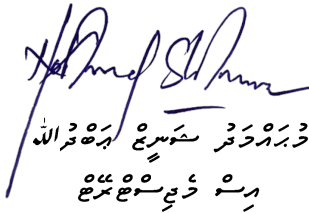 މުޙައްމަދު ޝަނީޒް ޢަބްދުﷲ
އިސް މެޖިސްޓްރޭޓް